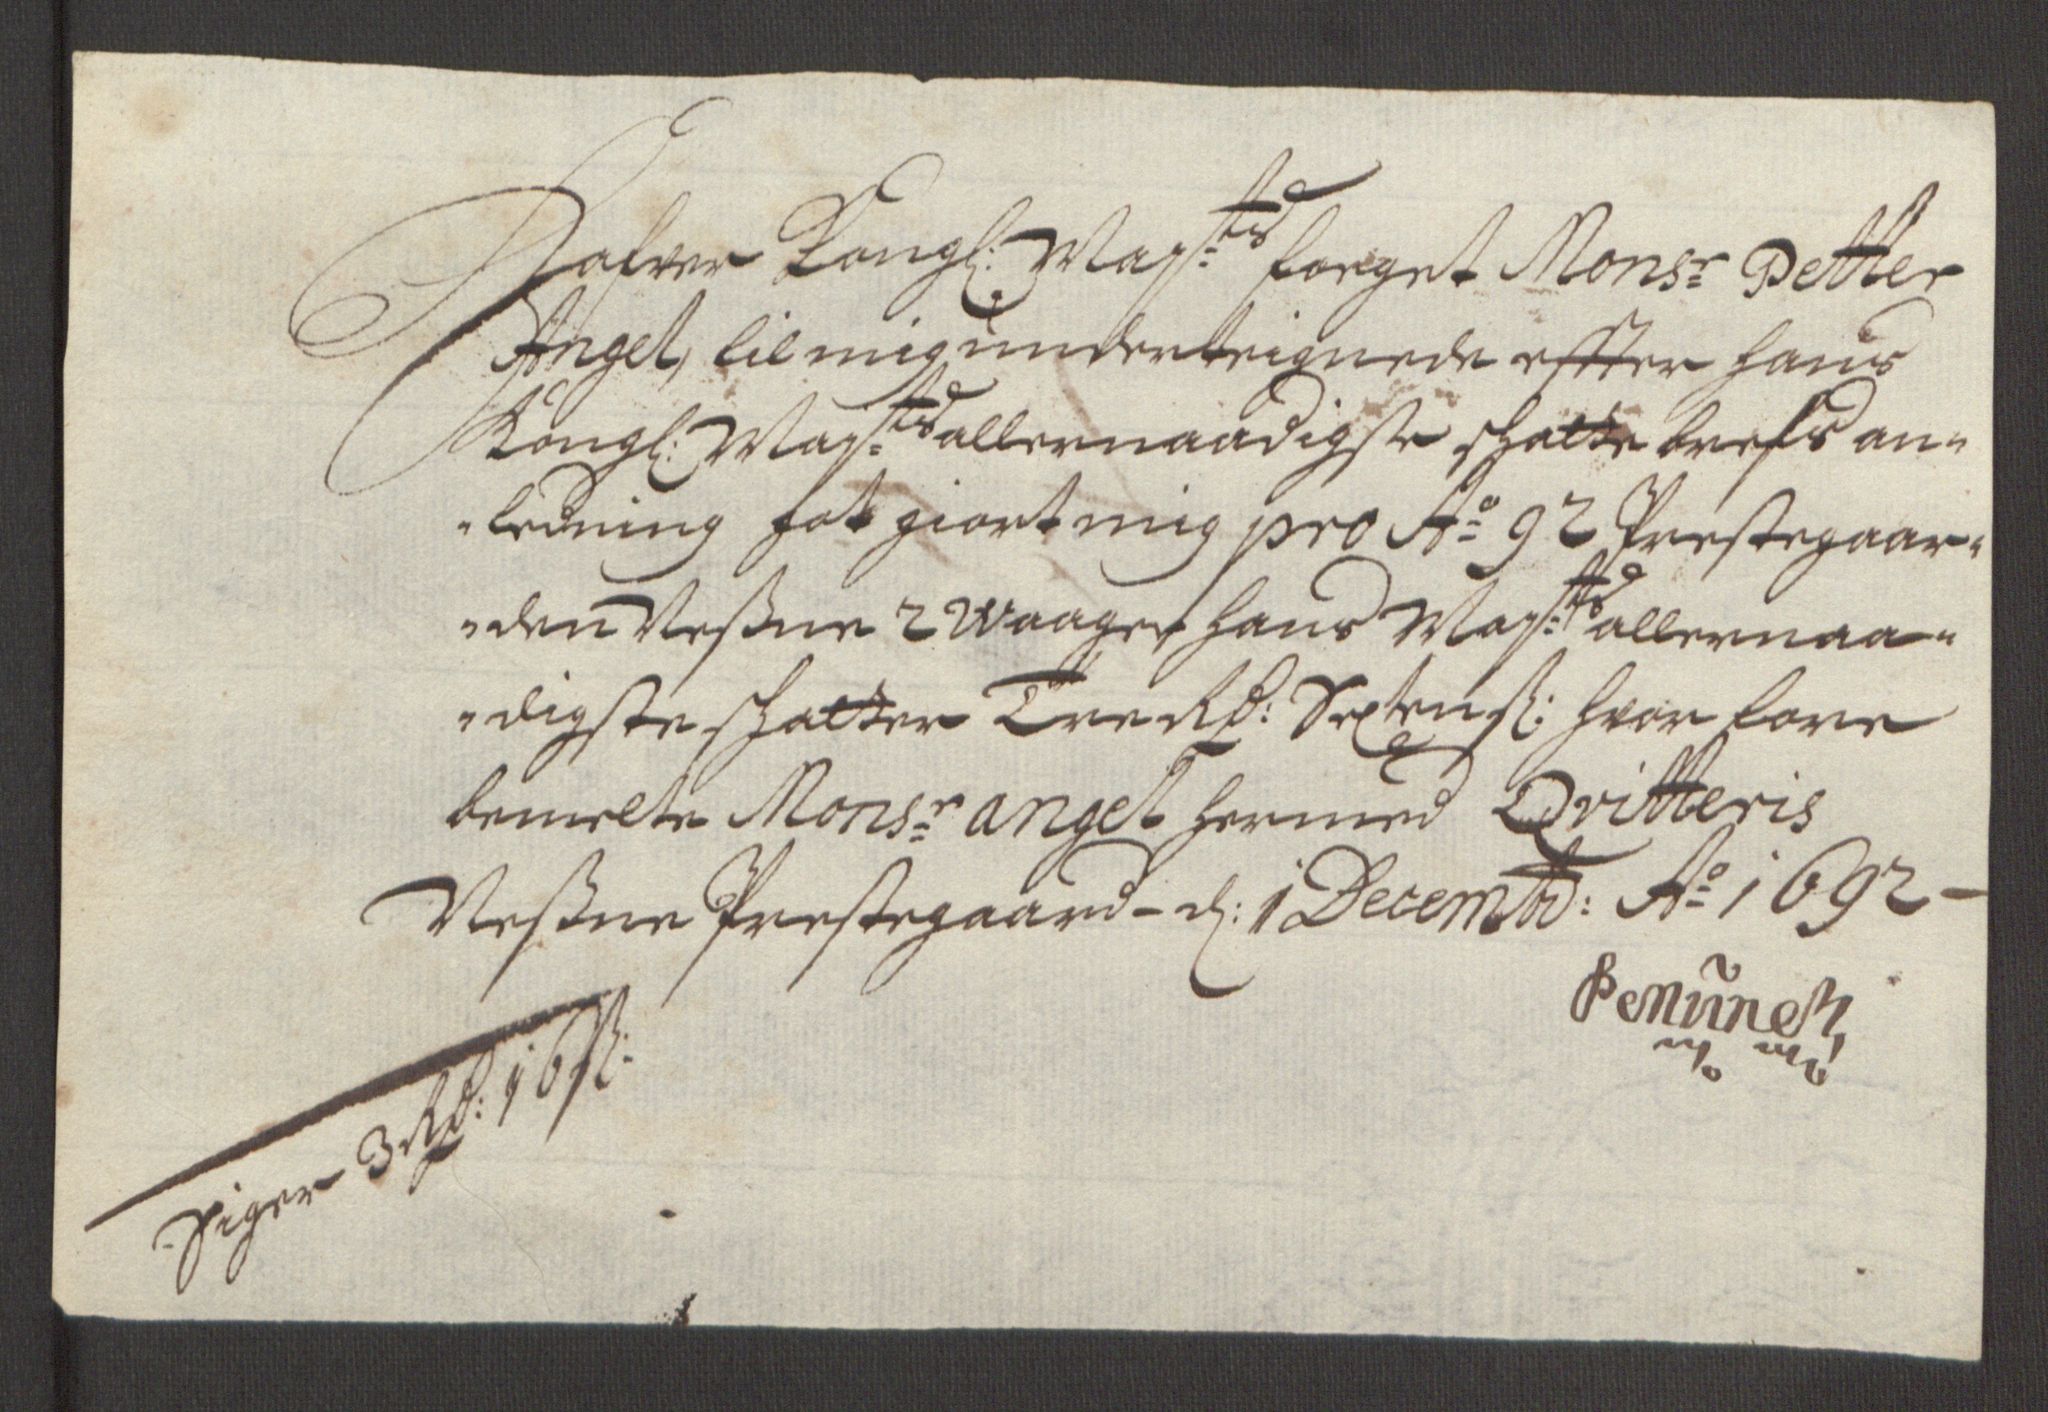 Hafver Kongl: Mayst:tts foeget Monsr Petter
Angel, till mig underteignede effter hans
Kongl: Mayst:tts allernaadigste schatte brefs an-
-ledning fat giort mig pro Ao 92 Prestegaar-
-den Vessne 2 Waager hans Mayst:tts allernaa-
-digste schatter Tre Rd: Sexten s: hvor fore
bemelte Monsr Angel hermed Qvitteris
Vessne Prestegaard - d: 1 Decembr: Ao 1692 -
P Munch
mp
Siger 3 Rd: 16 s: